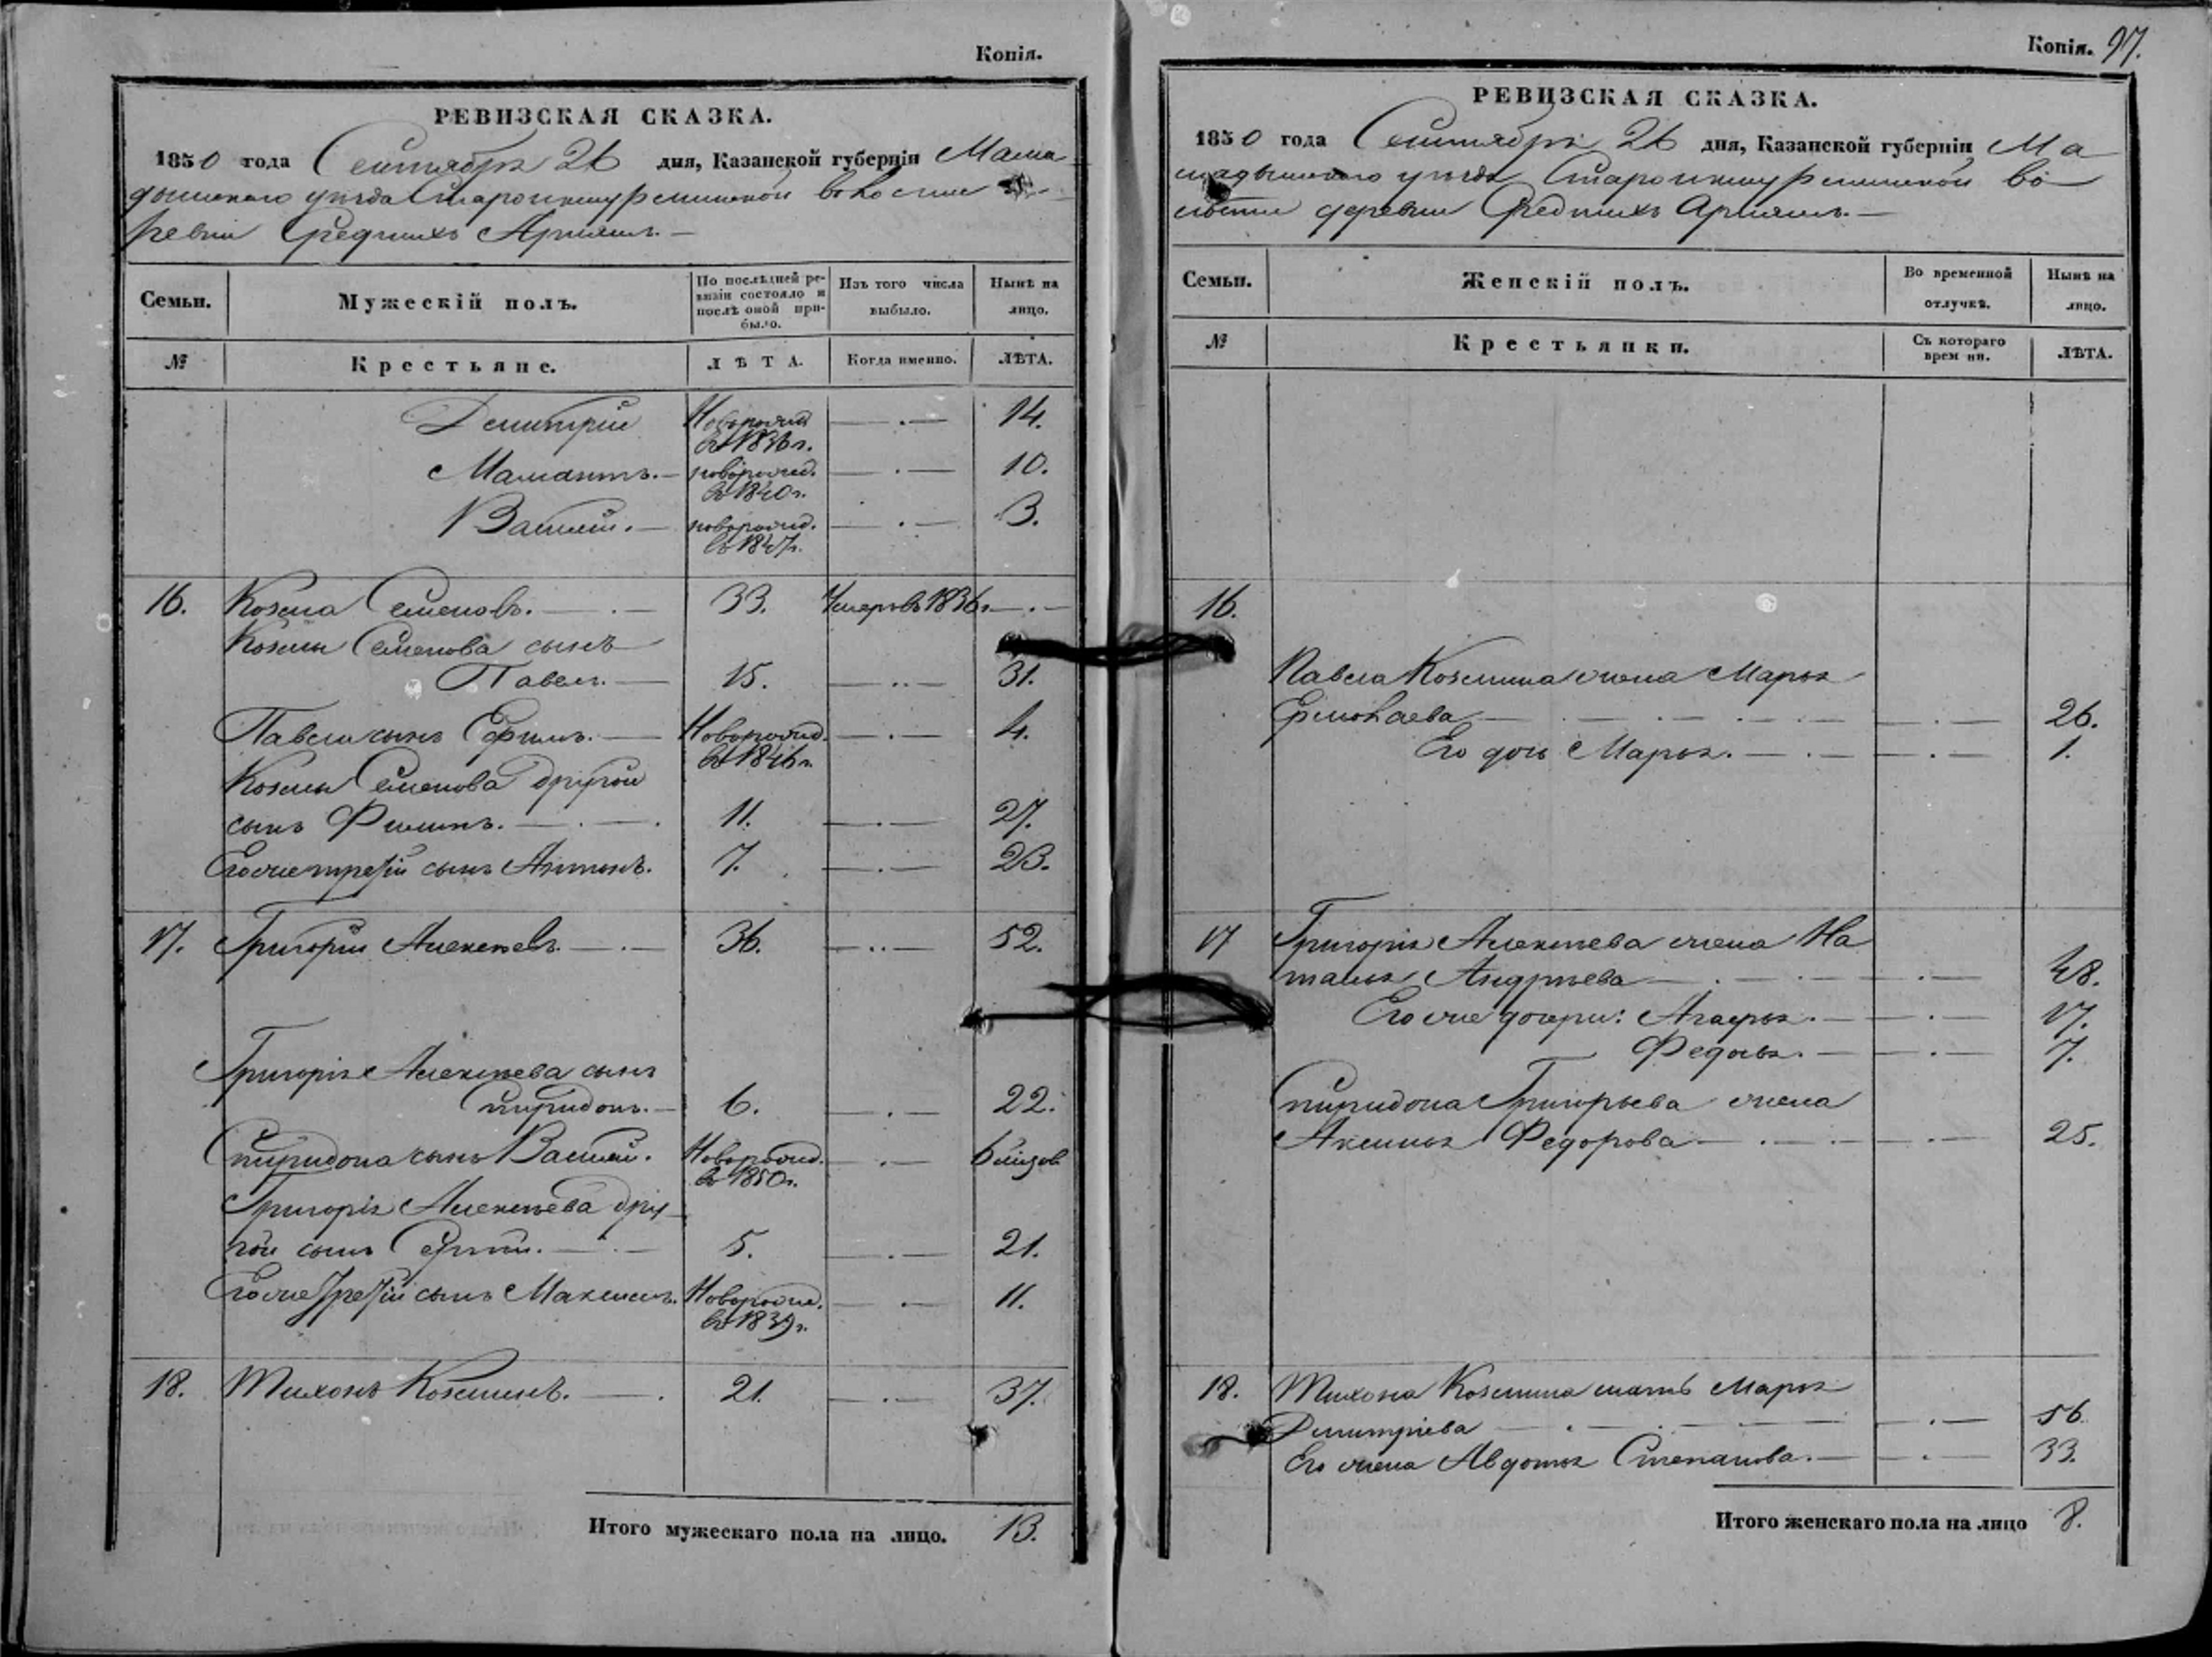 Копія.
РЕВИЗСКАЯ СКАЗКА.
1850 года Сентября 26 дня, Казанской губерніи Мама
дышскаго уѣзда Старо волости де
ревни Среднихъ
Семьи.
Мужескій полъ.
По послѣдней ре-
визіи состояло и
послѣ оной при-
было.
Изъ того числа
выбыло.
Нынѣ на
лицо.
№
Крестьяне.
ЛѢТА.
Когда именно.
ЛѢТА.
Дмитрій Новорожд. въ 1836 г. — . — 14.
Мамантъ. — новорожд. въ 1840 г. — . — 10.
Василій. — новорожд. въ 1847 г. — . — 3.
16. Козма Семеновъ. — . — 33. Умеръ въ 1836 г. — . —
Козмы Семенова сынъ
Павелъ. — 15. — .. — 31.
Павла сынъ Ефимъ. — Новорожд. въ 1846 г. — . — 4.
Козмы Семенова другой
сынъ Филипъ. — . — . 11. — . — 27.
Его же третій сынъ Антонъ. 7. — . — 23.
17. Григорій Алексѣевъ. — . — 36. — .. — 52.
Григорія Алексѣева сынъ
Спиридонъ. — 6. — . — 22.
Спиридона сынъ Василій. Новорожд. въ 1850 г. — . —
Григорія Алексѣева дру
гой сынъ Сергѣй. — . — 5. — . — 21.
Его же третій сынъ Максимъ. Новорожд. въ 1839 г. — . — 11.
18. Тихонъ Козминъ. — . 21. — . — 37.
Итого мужескаго пола на лицо. 13.
Копія. 97.
РЕВИЗСКАЯ СКАЗКА.
1850 года Сентября 26 дня, Казанской губерніи Ма
мадышскаго уѣзда Старо во
лости деревни Среднихъ
Семьи.
Женскій полъ.
Во временной
отлучкѣ.
Нынѣ на
лицо.
№
Крестьянки.
Съ котораго
врем ни.
ЛѢТА.
16.
Павла Козмина жена Марья
Ермолаева — . — . — . — . — — . — 26.
Его дочь Марья. — . — — . — 1.
17 Григорія Алексѣева жена На
талья Андрѣева — . — . — — . — 48.
Его же дочери: Агафья. — — . — 17.
Федосья. — — . — 7.
Спиридона Григорьева жена
Аксинья Федорова — . — . — — . — 25.
18. Тихона Козмина мать Марья
Дмитріева — . — . — — . — 56.
Его жена Авдотья Степанова. — — . — 33.
Итого женскаго пола на лицо 8.